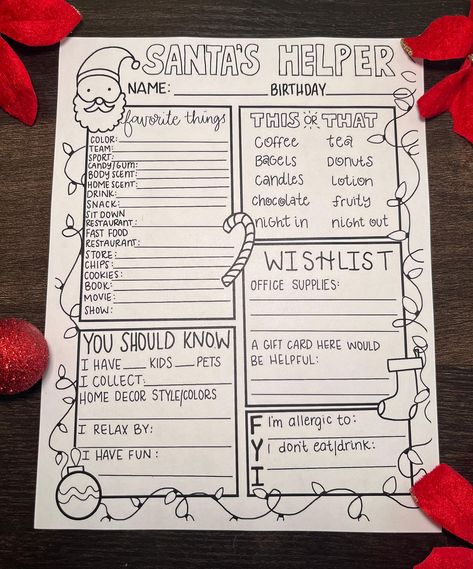 SANTA'S HELPER
NAME: BIRTHDAY
favorite things
COLOR:
TEAM:
SPORT:
CANDY/GUM:
BODY SCENT:
HOME SCENT:
DRINK:
SNACK:
SIT DOWN
RESTAURANT:
FAST FOOD
RESTAURANT:
STORE:
CHIPS:
COOKIES:
BOOK:
MOVIE:
SHOW:
THIS OR THAT
COFFEE tea
BAGELS DONUTS
CANDLES LOTION
chocolate fruity
NIGHT IN NIGHT OUT
WISHLIST
OFFICE SUPPLIES:
A GIFT CARD HERE WOULD
BE HELPFUL:
YOU SHOULD KNOW
I HAVE KIDS PETS
I COLLECT:
HOME DECOR STYLE/COLORS
I RELAX BY:
I HAVE FUN :
FYI
I'm allergic to:
I don't eat/drink: